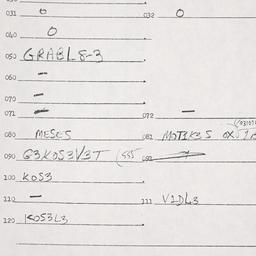 031 0 032 0
040 0
050 GRABL8-3
060 -
070 -
071 - 072 -
080 MESES 081 MOTIK3S
090 G3KOS3V3T (555 091
100 KOS3
110 - 111 V1DL3
120 KOS3L3